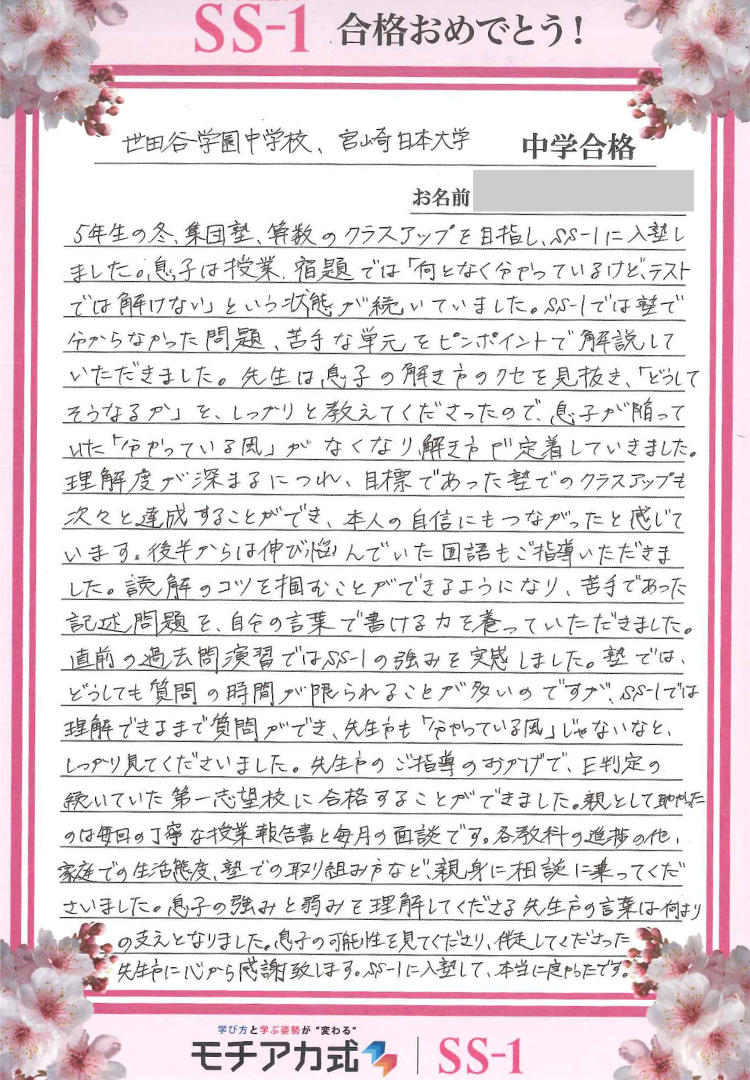 SS-1 合格おめでとう!
世田谷学園中学校、宮崎日本大学 中学合格
お名前
5年生の冬、集団塾、算数のクラスアップを目指し、SS-1に入塾し
ました。息子は授業、宿題では「何となく分かっているけど、テスト
では解けない」という状態が続いていました。SS-1では塾で
分からなかった問題、苦手な単元をピンポイントで解説して
いただきました。先生は息子の解き方のクセを見抜き、「どうして
そうなるか」を、しっかりと教えてくださったので、息子が陥って
いた「分かっている風」がなくなり、解き方が定着していきました。
理解度が深まるにつれ、目標であった塾でのクラスアップも
次々と達成することができ、本人の自信にもつながったと感じて
います。後半からは伸び悩んでいた国語もご指導いただきま
した。読解のコツを掴むことができるようになり、苦手であった
記述問題を、自分の言葉で書ける力を養っていただきました。
直前の過去問演習ではSS-1の強みを実感しました。塾では、
どうしても質問の時間が限られることが多いのですが、SS-1では
理解できるまで質問ができ、先生方も「分かっている風」じゃないなと、
しっかり見てくださいました。先生方のご指導のおかげで、E判定の
続いていた第一志望校に合格することができました。親として助かった
のは毎回の丁寧な授業報告書と毎月の面談です。各教科の進捗の他、
家庭での生活態度、塾での取り組み方など、親身に相談に乗ってくだ
さいました。息子の強みと弱みを理解してくださる先生方の言葉は何より
の支えとなりました。息子の可能性を見てくださり、伴走してくださった
先生方に心から感謝致します。SS-1に入塾して、本当に良かったです。
学び方と学ぶ姿勢が“変わる”
モチアカ式 SS-1